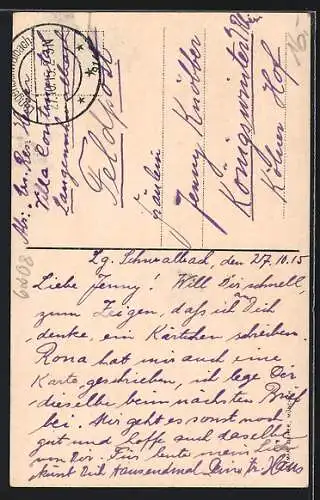 Villa Continental
Langenschwalbach
Feldpost
Fräulein
Jenny Knöbber
Königswinter a/Rh
Kölner Hof
Lg. Schwalbach, den 27.10.15
Liebe Jenny! Will Dir schnell,
zum Zeigen, daß ich an Dich
denke, ein Kärtchen schreiben.
Rona hat mir auch eine
Karte geschrieben, ich lege Dir
dieselbe beim nächsten Brief
bei. Mir geht es sonst noch
gut und hoffe auch dasselbe
von Dir. Für heute mein Lieb
küsst Dich tausendmal Dein Hans
16.-